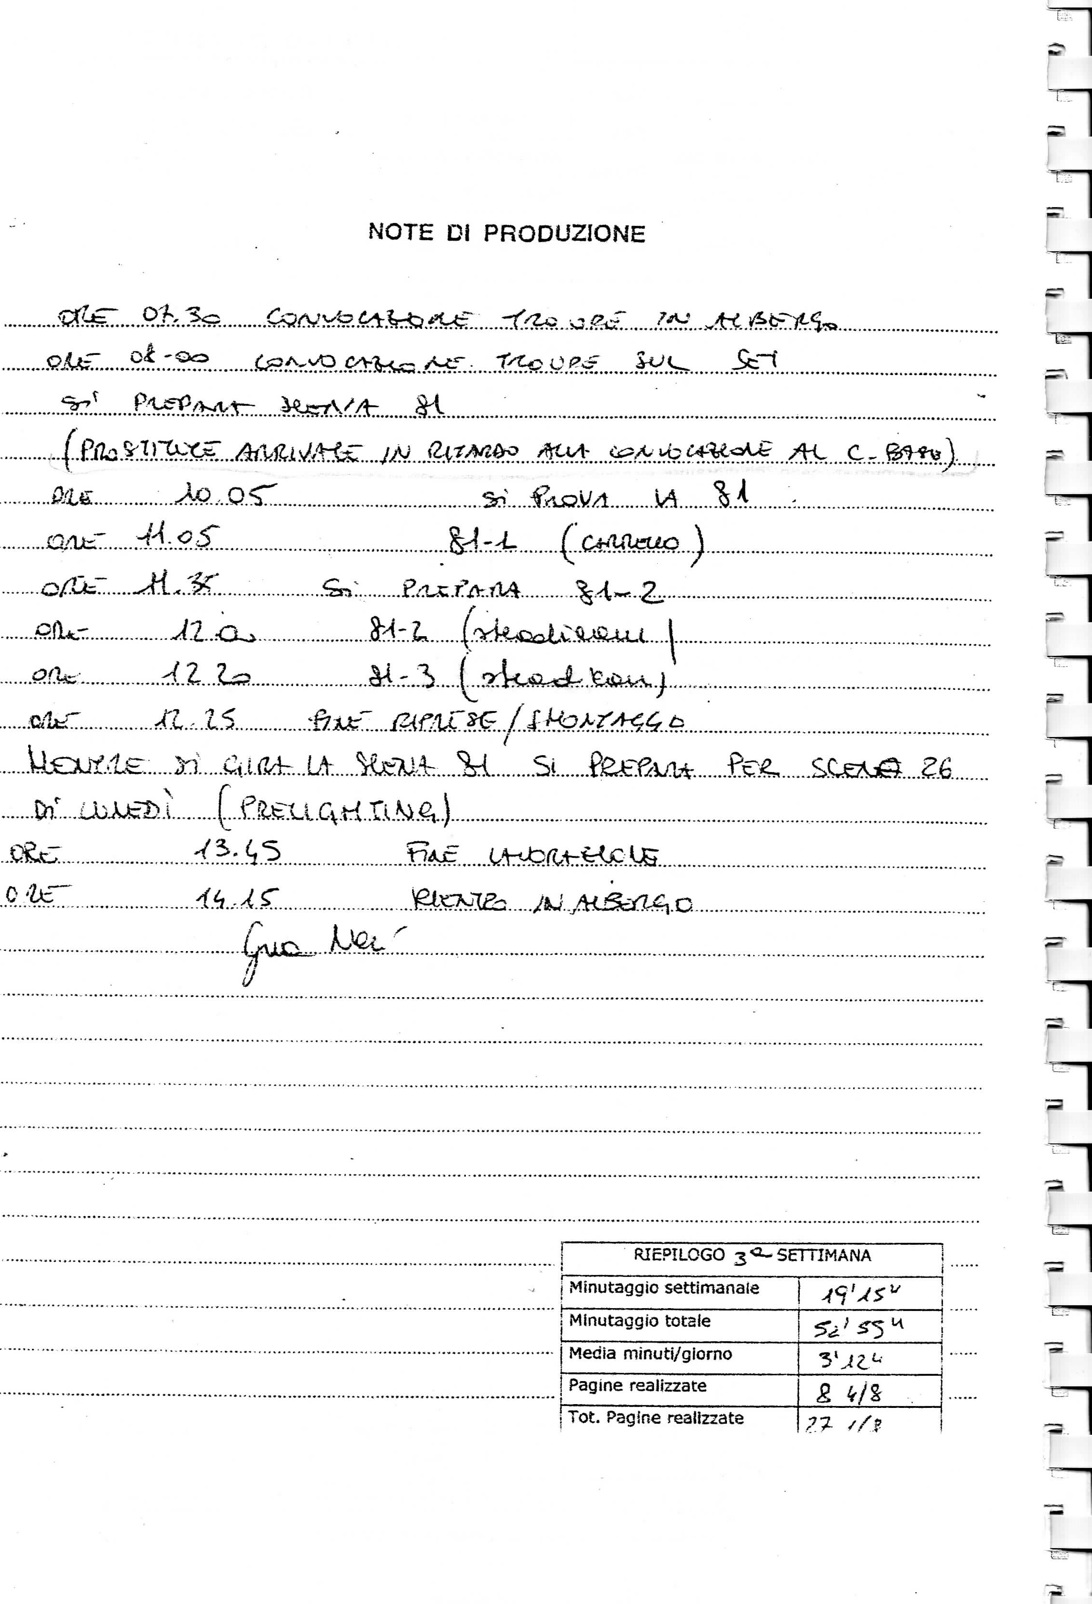 NOTE DI PRODUZIONE
ORE 07.30 CONVOCAZIONE TROUPE IN ALBERGO
ORE 08.00 CONVOCAZIONE TROUPE SUL SET
SI PREPARA SCENA 81
(PROSTITUTE ARRIVATE IN RITARDO ALLA CONVOCAZIONE AL C. BASE)
ORE 10.05 SI PROVA LA 81
ORE 11.05 81-1 (CARRELLO)
ORE 11.35 SI PREPARA 81-2
ORE 81-2 (steadicam)
ORE 12.20 81-3 (steadicam)
ORE 12.25 FINE RIPRESE/SMONTAGGIO
MENTRE SI GIRA LA SCENA 81 SI PREPARA PER SCENA 26
DI LUNEDÌ (PRELIGHTING)
ORE 13.45 FINE LAVORAZIONE
ORE 14.15 RIENTRO IN ALBERGO
RIEPILOGO 3a SETTIMANA
Minutaggio settimanale 19'15"
Minutaggio totale 55"
Media minuti/giorno 3'12"
Pagine realizzate 8 4/8
Tot. Pagine realizzate 27 1/8